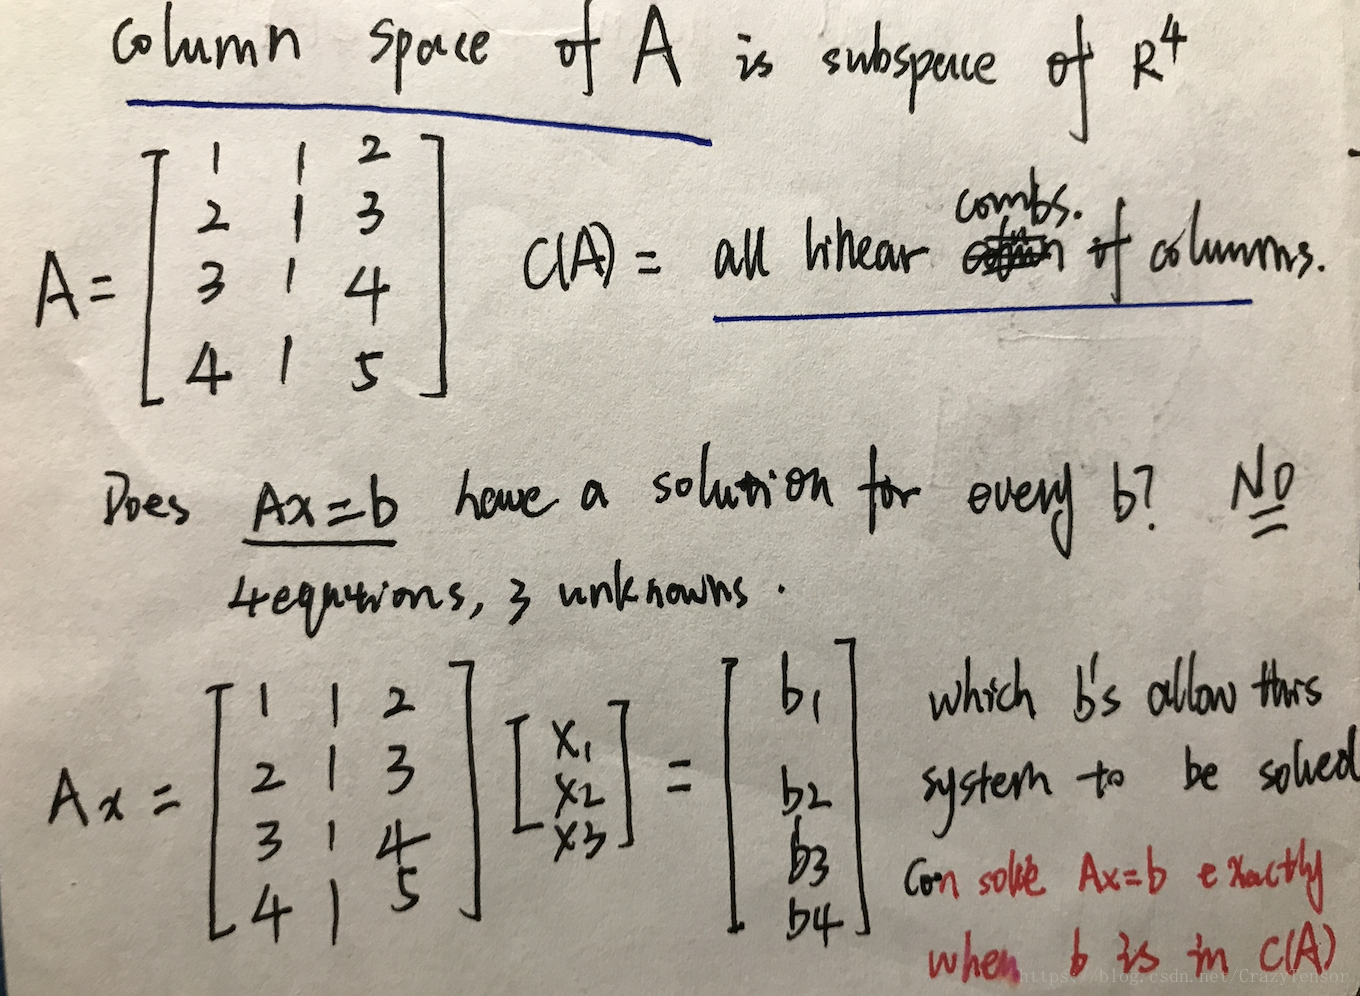 Column space of A is subspace of R⁴
A = [ 1 1 2
2 1 3
3 1 4
4 1 5 ]
C(A) = all linear combs. of columns.
Does Ax=b have a solution for every b? NO
4 equtions, 3 unknowns.
Ax = [ 1 1 2
2 1 3
3 1 4
4 1 5 ] [ x₁
x2
x3 ] = [ b₁
b2
b3
b4 ]
which b's allow this
system to be solved
Can solve Ax=b exactly
when b is in C(A)
https://blog.csdn.net/CrazyTensor